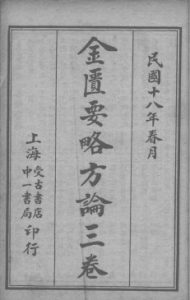 民國十八年春月
金匱要略方論三卷
上海
受古書店
中一書局
印行